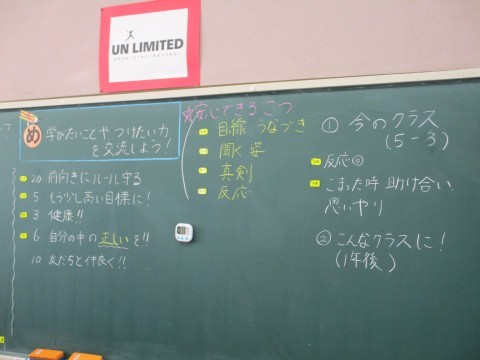 UN LIMITED
め 学びたいことや つけたい力
を交流しよう!
20 前向きにルール守る
5 もう少し高い目標に!
3 健康!!
6 自分の中の正しいを!!
10 友だちと仲良く!!
できるこつ
目線、うなづき
聞く姿
真剣
反応
① 今のクラス
(5-3)
反応◎
こまった時 助け合い
思いやり
② こんなクラスに!
(1年後)